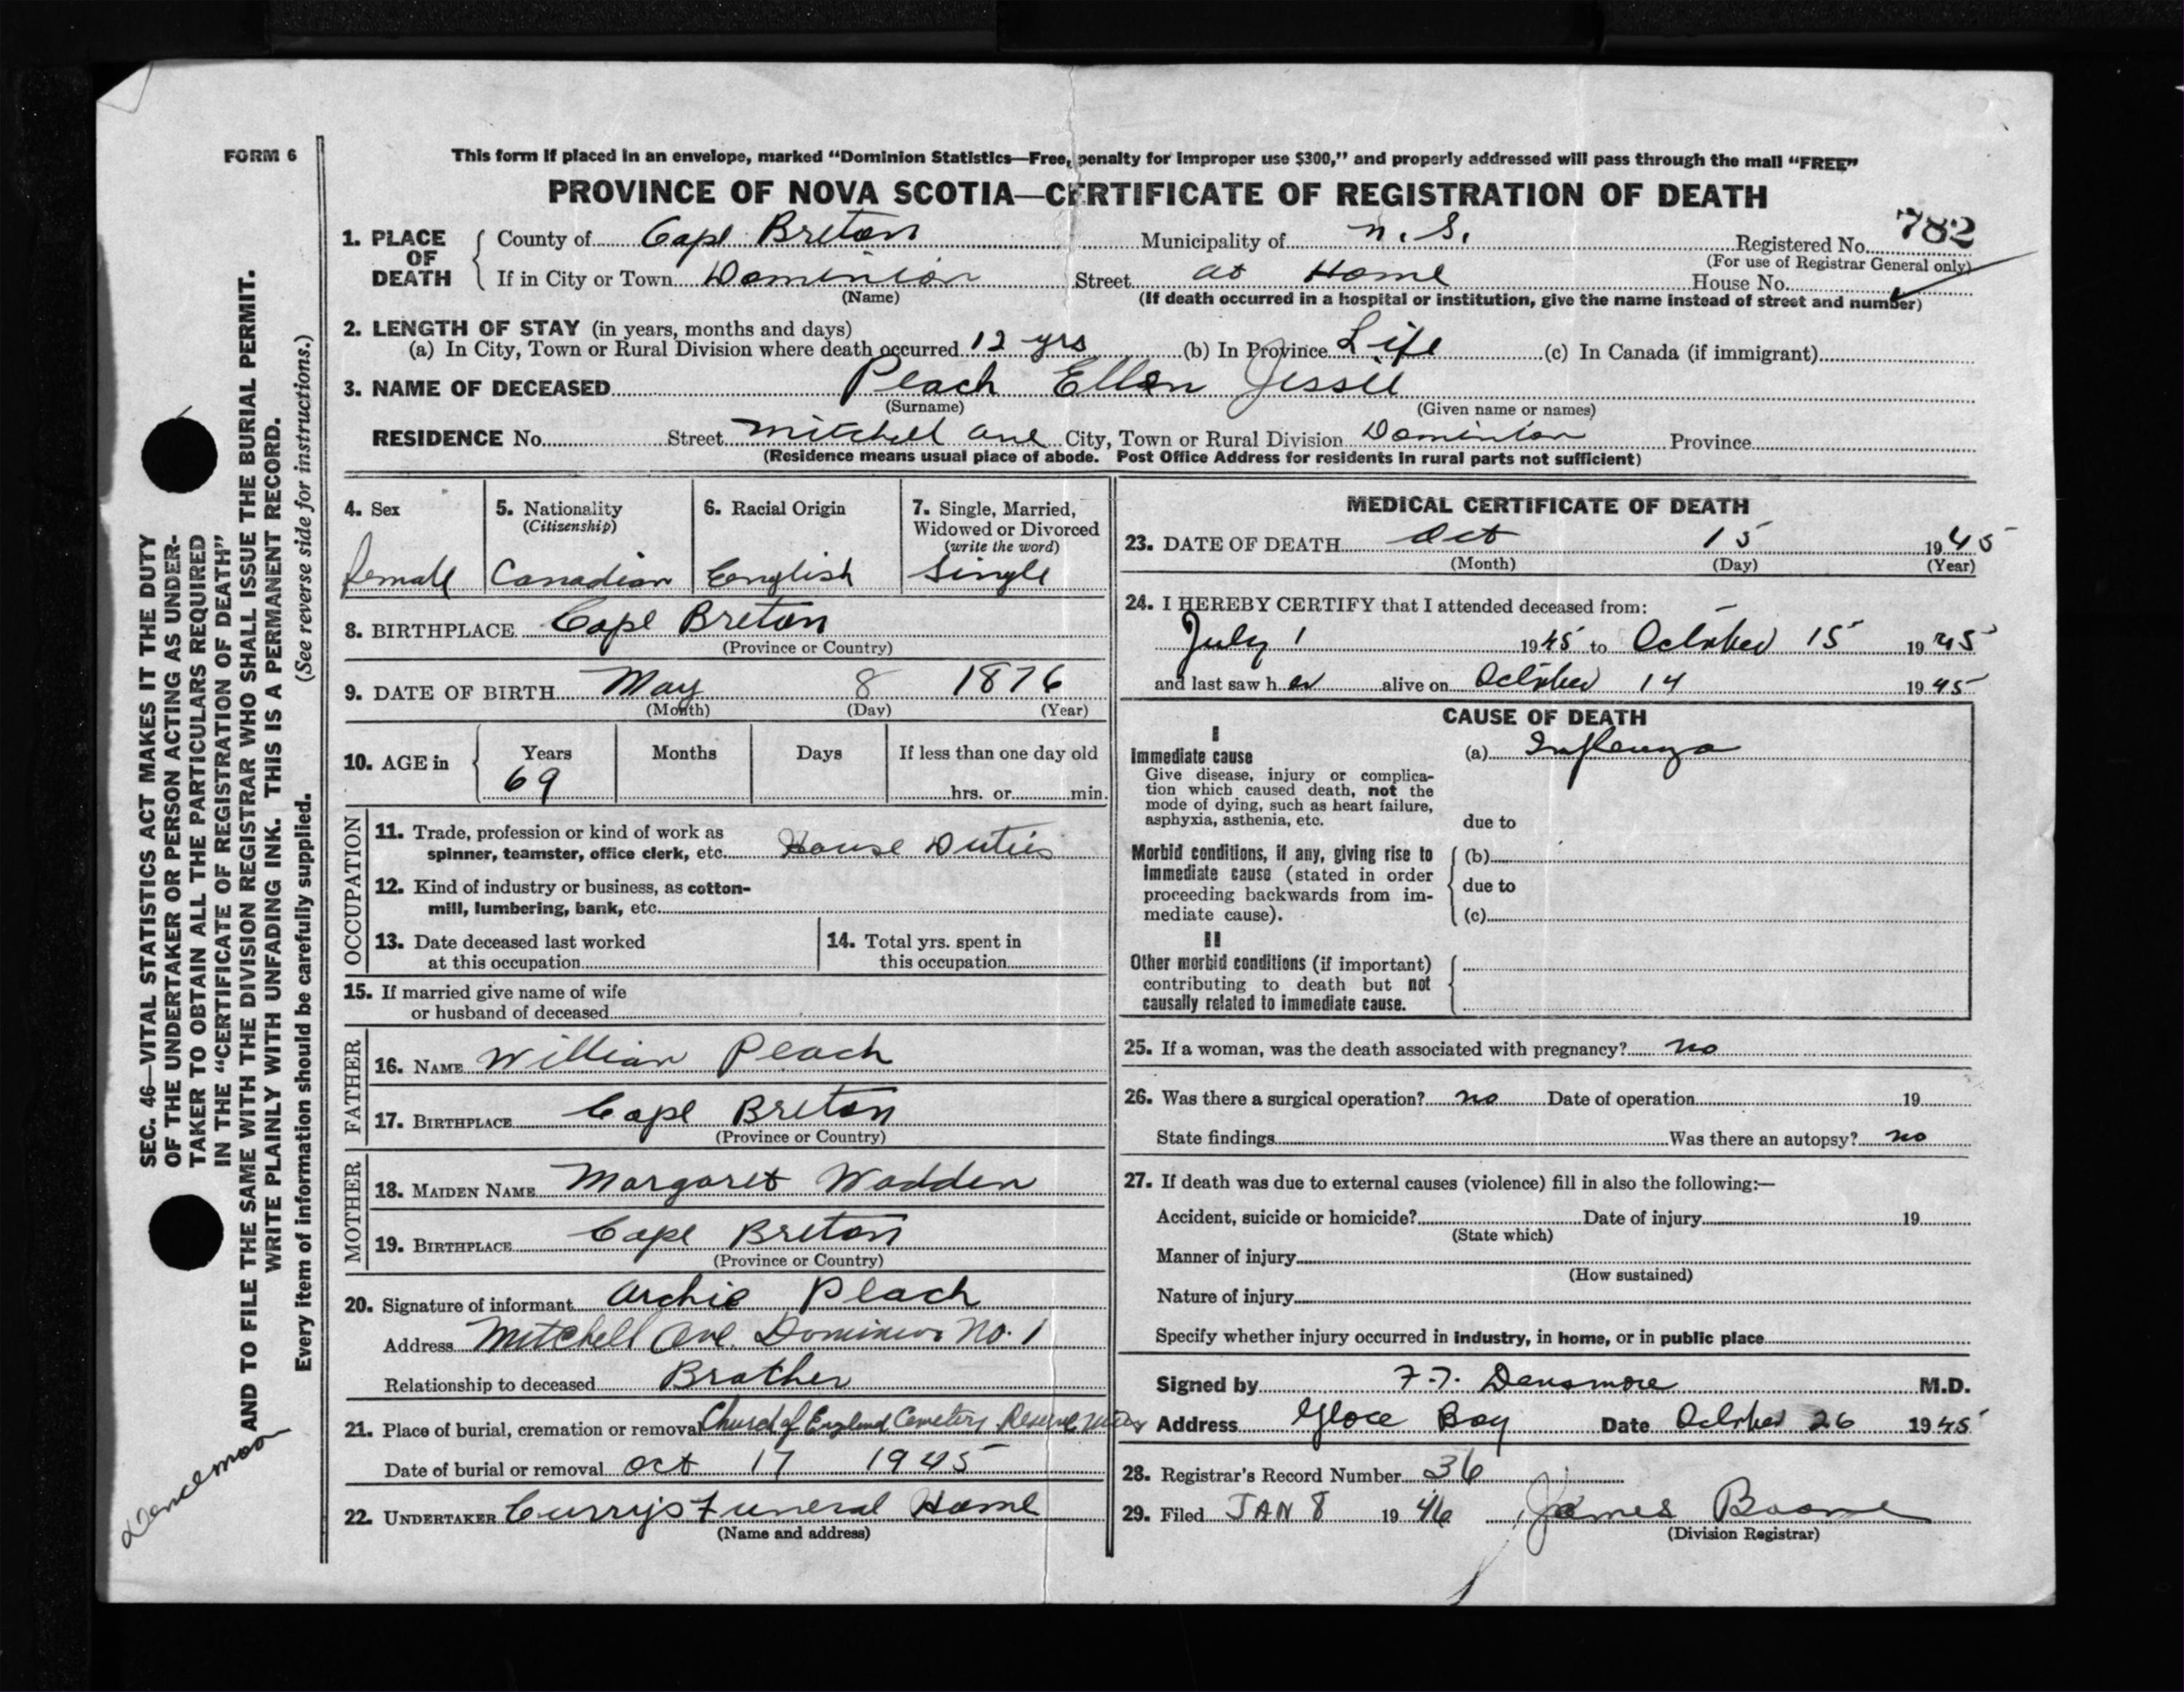 FORM 6
This form if placed in an envelope, marked “Dominion Statistics—Free, penalty for improper use $300,” and properly addressed will pass through the mail “FREE”
PROVINCE OF NOVA SCOTIA—CERTIFICATE OF REGISTRATION OF DEATH
782
1. PLACE OF DEATH County of Cape Breton Municipality of N. S. Registered No.
(For use of Registrar General only)
If in City or Town Dominion Street at Home House No.
(Name) (If death occurred in a hospital or institution, give the name instead of street and number)
2. LENGTH OF STAY (in years, months and days)
(a) In City, Town or Rural Division where death occurred 12 yrs (b) In Province Life (c) In Canada (if immigrant)
3. NAME OF DECEASED Peach Ellen Jessie
(Surname) (Given name or names)
RESIDENCE No. Street Mitchell Ave City, Town or Rural Division Dominion Province
(Residence means usual place of abode. Post Office Address for residents in rural parts not sufficient)
4. Sex
female
5. Nationality
(Citizenship)
Canadian
6. Racial Origin
English
7. Single, Married,
Widowed or Divorced
(write the word)
Single
8. BIRTHPLACE Cape Breton
(Province or Country)
9. DATE OF BIRTH May 8 1876
(Month) (Day) (Year)
10. AGE in Years Months Days If less than one day old
69 hrs. or min.
OCCUPATION
11. Trade, profession or kind of work as
spinner, teamster, office clerk, etc. House Duties
12. Kind of industry or business, as cotton-
mill, lumbering, bank, etc.
13. Date deceased last worked
at this occupation
14. Total yrs. spent in
this occupation
15. If married give name of wife
or husband of deceased
FATHER
16. NAME William Peach
17. BIRTHPLACE Cape Breton
(Province or Country)
MOTHER
18. MAIDEN NAME Margaret Wadden
19. BIRTHPLACE Cape Breton
(Province or Country)
20. Signature of informant Archie Peach
Address Mitchell Ave. Dominion No. 1
Relationship to deceased Brother
21. Place of burial, cremation or removal Church of England Cemetery Reserve Mines
Date of burial or removal Oct 17 1945
22. UNDERTAKER Curry's Funeral Home
(Name and address)
MEDICAL CERTIFICATE OF DEATH
23. DATE OF DEATH Oct 15 1945
(Month) (Day) (Year)
24. I HEREBY CERTIFY that I attended deceased from:
July 1 1945 to October 15 1945
and last saw her alive on October 14 1945
CAUSE OF DEATH
I
Immediate cause (a) Influenza
Give disease, injury or complica-
tion which caused death, not the
mode of dying, such as heart failure,
asphyxia, asthenia, etc. due to
Morbid conditions, if any, giving rise to (b)
immediate cause (stated in order
proceeding backwards from im- due to
mediate cause). (c)
II
Other morbid conditions (if important)
contributing to death but not
causally related to immediate cause.
25. If a woman, was the death associated with pregnancy? no
26. Was there a surgical operation? no Date of operation 19
State findings Was there an autopsy? no
27. If death was due to external causes (violence) fill in also the following:—
Accident, suicide or homicide? Date of injury 19
(State which)
Manner of injury
(How sustained)
Nature of injury
Specify whether injury occurred in industry, in home, or in public place
Signed by F. T. Densmore M.D.
Address Glace Bay Date October 26 1945
28. Registrar's Record Number 36
29. Filed JAN 8 1946 James Boone
(Division Registrar)
SEC. 46—VITAL STATISTICS ACT MAKES IT THE DUTY
OF THE UNDERTAKER OR PERSON ACTING AS UNDER-
TAKER TO OBTAIN ALL THE PARTICULARS REQUIRED
IN THE “CERTIFICATE OF REGISTRATION OF DEATH”
AND TO FILE THE SAME WITH THE DIVISION REGISTRAR WHO SHALL ISSUE THE BURIAL PERMIT.
WRITE PLAINLY WITH UNFADING INK. THIS IS A PERMANENT RECORD.
Every item of information should be carefully supplied. (See reverse side for instructions.)